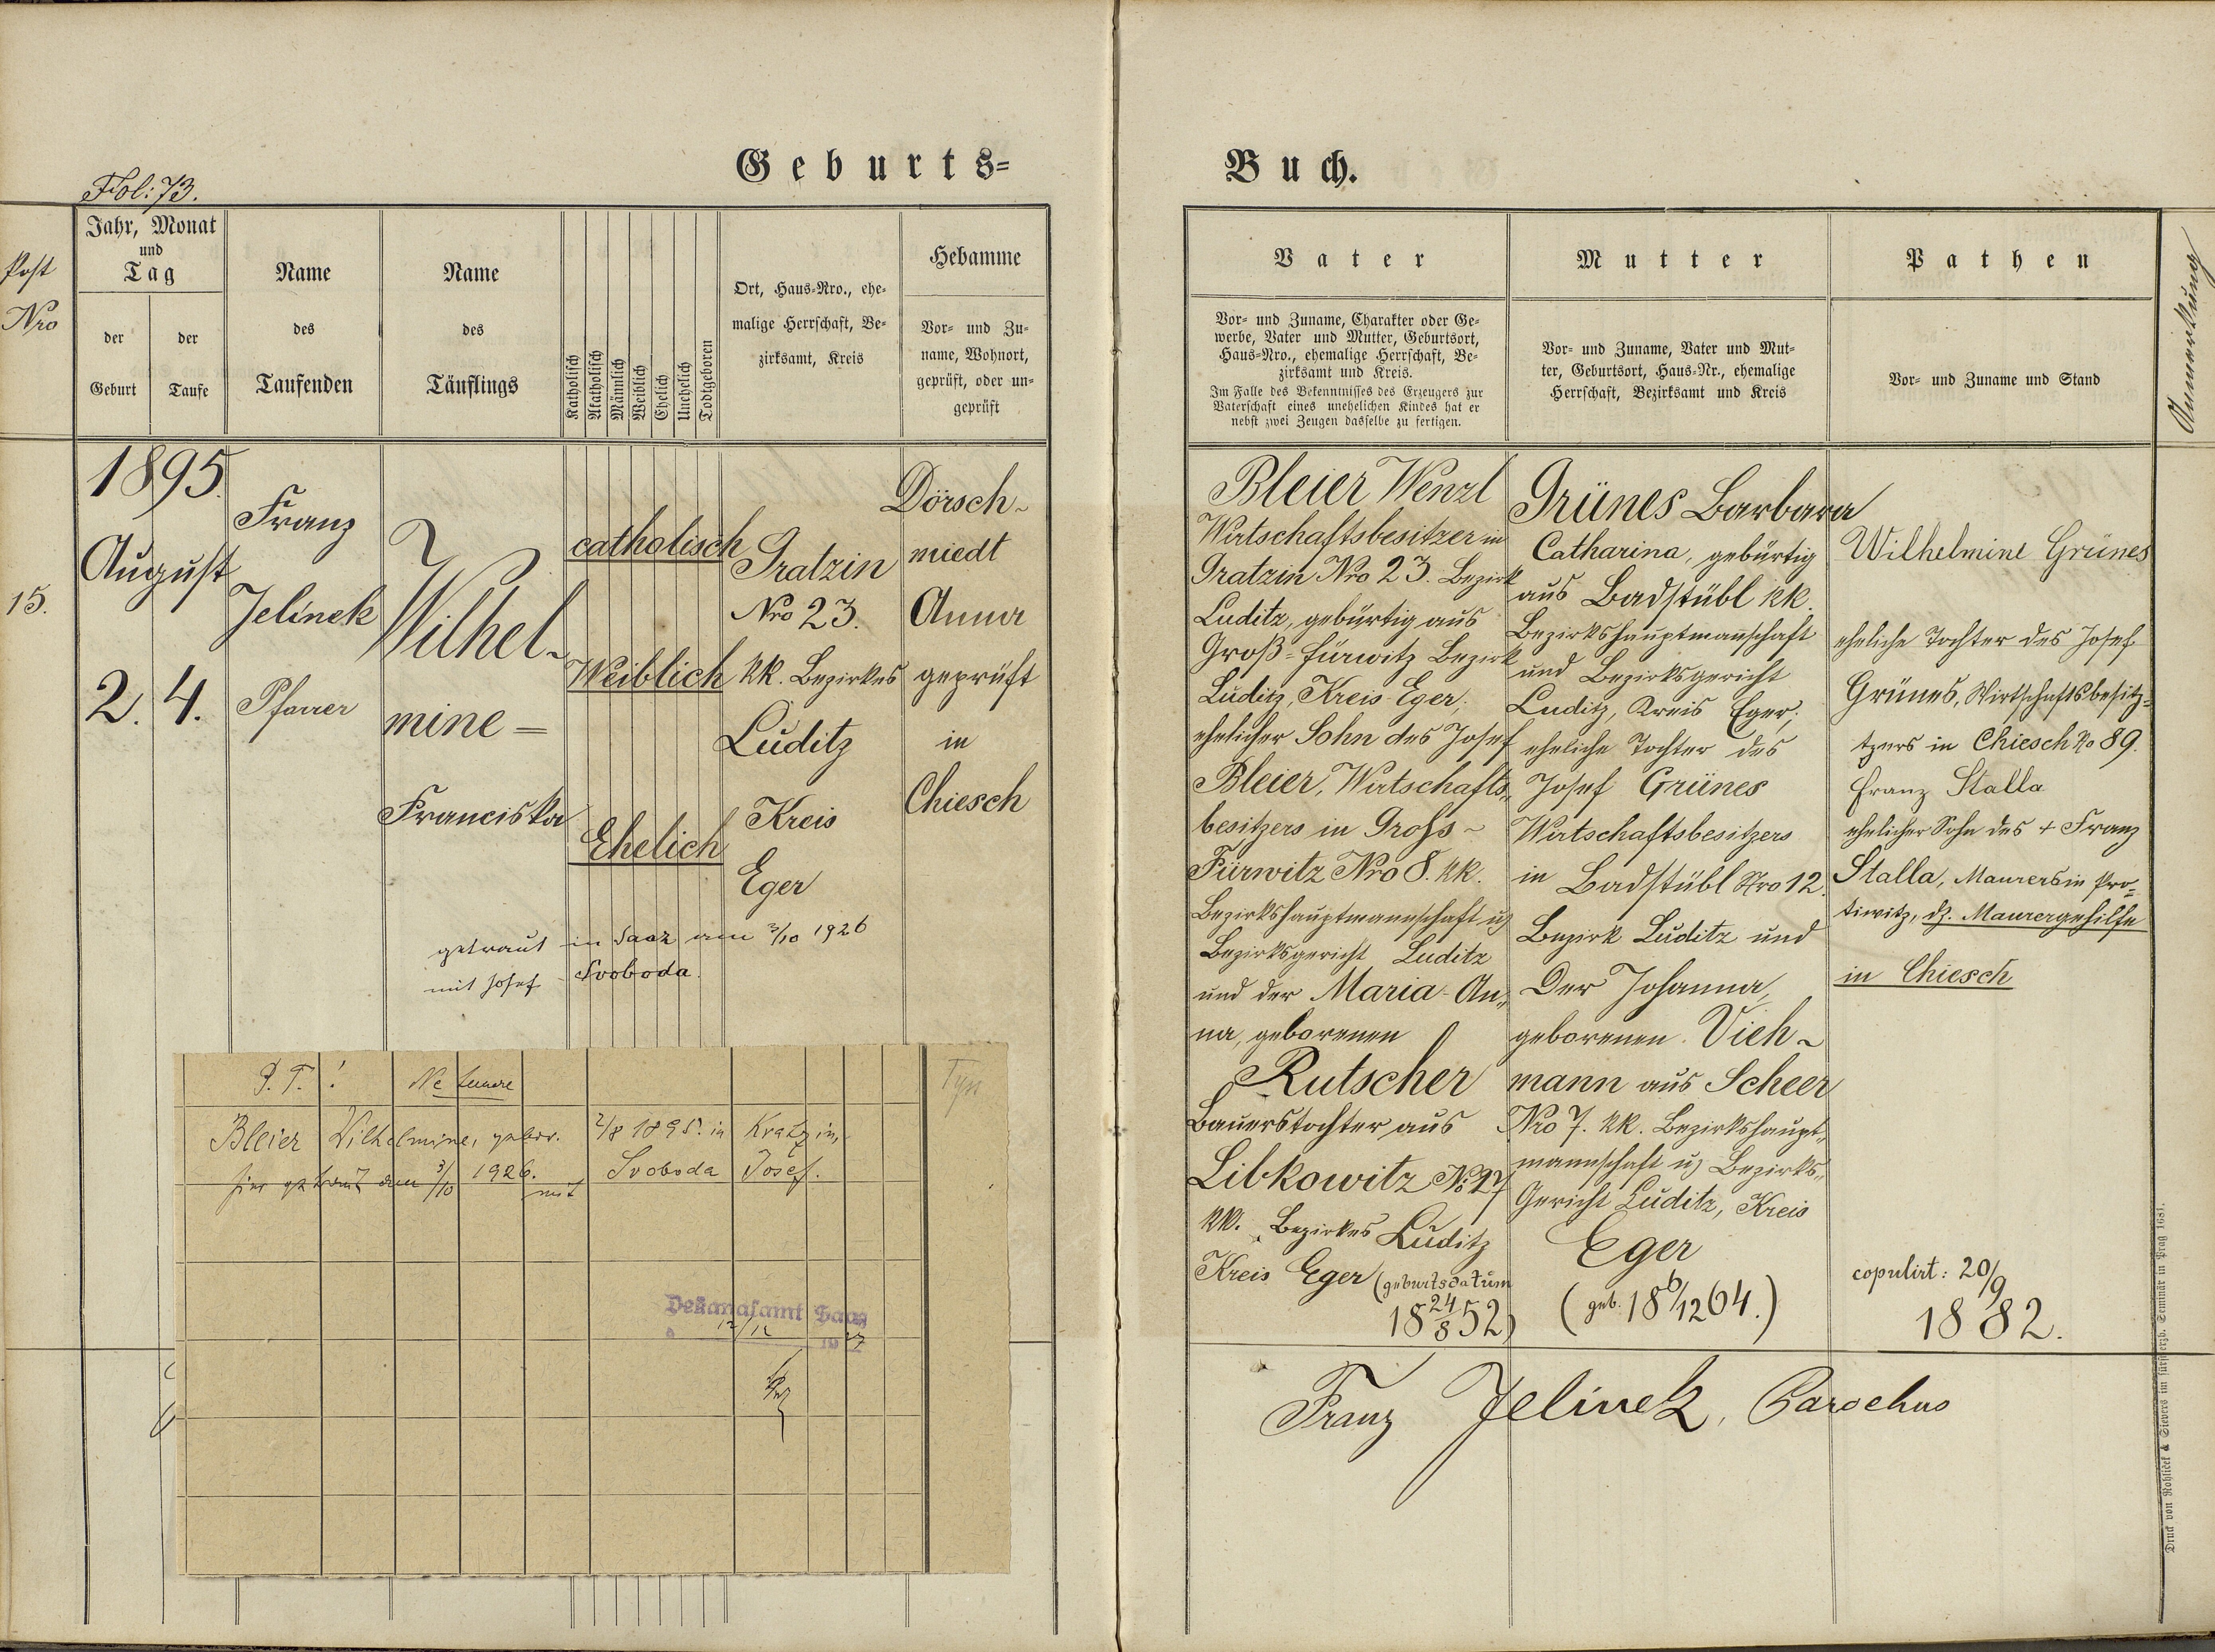 Geburts=
Buch.
Fol: 73.
Post
Nro
Jahr, Monat
und
Tag
der
Geburt
der
Taufe
Name
des
Taufenden
Name
des
Täuflings
Katholisch
Akatholisch
Männlich
Weiblich
Ehelich
Unehelich
Todtgeboren
Ort, Haus-Nro., ehe-
malige Herrschaft, Be-
zirksamt, Kreis
Hebamme
Vor- und Zu-
name, Wohnort,
geprüft, oder un-
geprüft
15.
1895.
August
2. 4.
Franz
Jelinek
Pfarrer
Wilhel-
mine =
Franciska
catholisch
Weiblich
Ehelich
Gratzin
Nro 23.
kk. Bezirkes
Luditz
Kreis
Eger
Dörsch-
miedt
Anna
geprüft
in
Chiesch
getraut in Saaz am 3/10 1926
mit Josef Svoboda.
P. T. ! Ne temere
Bleier Wilhelmine, gebor. 2/8 1895. in Kratzin,
hier getraut am 3/10 1926. mit Svoboda Josef.
Dekanalamt Saaz
12/12 1927
Vater
Vor- und Zuname, Charakter oder Ge-
werbe, Vater und Mutter, Geburtsort,
Haus-Nro., ehemalige Herrschaft, Be-
zirksamt und Kreis.
Im Falle des Bekenntnisses des Erzeugers zur
Vaterschaft eines unehelichen Kindes hat er
nebst zwei Zeugen dasselbe zu fertigen.
Mutter
Vor- und Zuname, Vater und Mut-
ter, Geburtsort, Haus-Nr., ehemalige
Herrschaft, Bezirksamt und Kreis
Pathen
Vor- und Zuname und Stand
Anmerkung
Bleier Wenzl
Wirtschaftsbesitzer in
Gratzin Nro 23. Bezirk
Luditz, gebürtig aus
Groß-Fürwitz Bezirk
Luditz, Kreis Eger;
ehelicher Sohn des Josef
Bleier, Wirtschafts-
besitzers in Gross-
Fürwitz Nro 8. kk.
Bezirkshauptmannschaft u)
Bezirksgericht Luditz
und der Maria An-
na, geborenen
Rutscher
Bauerstochter aus
Libkowitz No 27
kk. Bezirkes Luditz
Kreis Eger (geburtsdatum
18 24/8 52)
Grünes Barbara
Catharina, gebürtig
aus Badstübl kk.
Bezirkshauptmanschaft
und Bezirksgericht
Luditz, Kreis Eger;
eheliche Tochter des
Josef Grünes
Wirtschaftsbesitzers
in Badstübl Nro 12.
Bezirk Luditz und
Der Johanna,
geborenen Vieh-
mann aus Scheer
Nro 7. kk. Bezirkshaupt-
mannschaft u) Bezirks-
Gericht Luditz, Kreis
Eger
(geb. 18 6/12 64.)
Wilhelmine Grünes
eheliche Tochter des Josef
Grünes, Wirtschaftsbesitz=
tzers in Chiesch No 89.
Franz Stalla
ehelicher Sohn des + Franz
Stalla, Maurers in Pro=
tiwitz, dz. Maurergehilfe
in Chiesch
copulirt: 20/9
1882.
Franz Jelinek, Parochus
Druck von Rohliček & Sievers im fürsterzb. Seminär in Prag 1681.